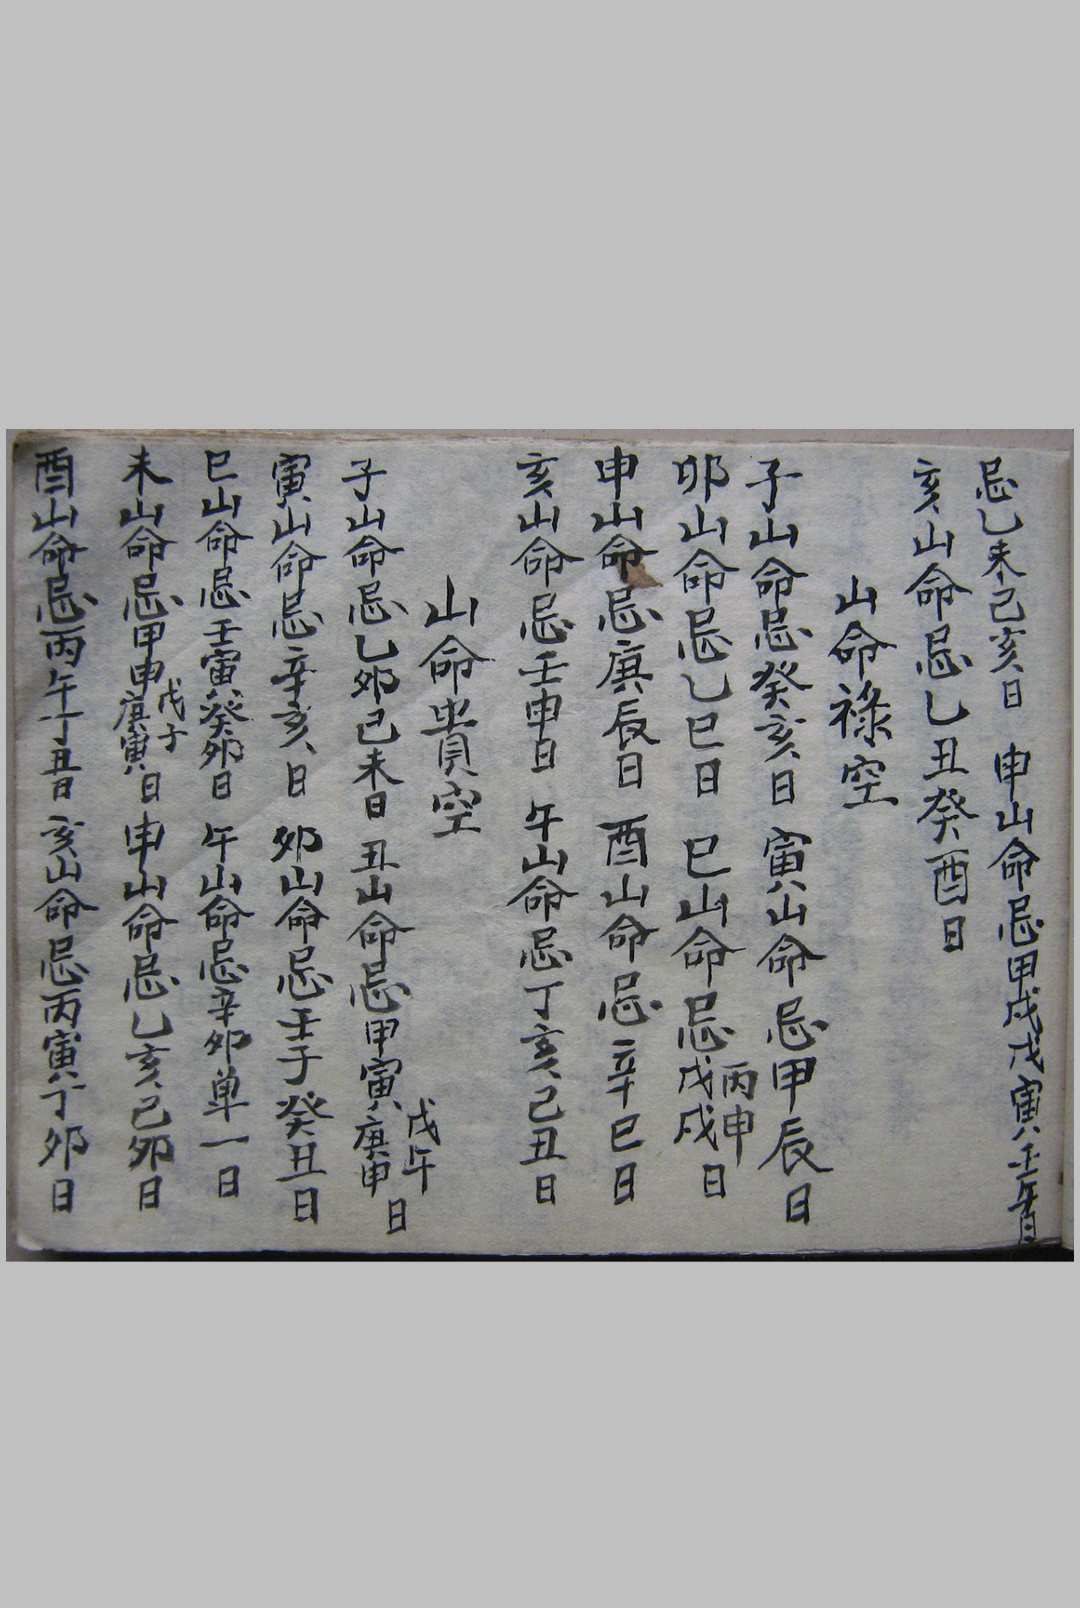 忌乙未己亥日　申山命忌甲戌戊寅壬午日
亥山命忌乙丑癸酉日
山命祿空
子山命忌癸亥日　寅山命忌甲辰日
卯山命忌乙巳日　巳山命忌戊戌丙申日
申山命忌庚辰日　酉山命忌辛巳日
亥山命忌壬申日　午山命忌丁亥己丑日
山命貴空
子山命忌乙卯己未日　丑山命忌甲寅庚申戊午日
寅山命忌辛亥日　卯山命忌壬子癸丑日
巳山命忌壬寅癸卯日　午山命忌辛卯单一日
未山命忌甲申庚寅戊子日　申山命忌乙亥己卯日
酉山命忌丙午丁丑日　亥山命忌丙寅丁卯日